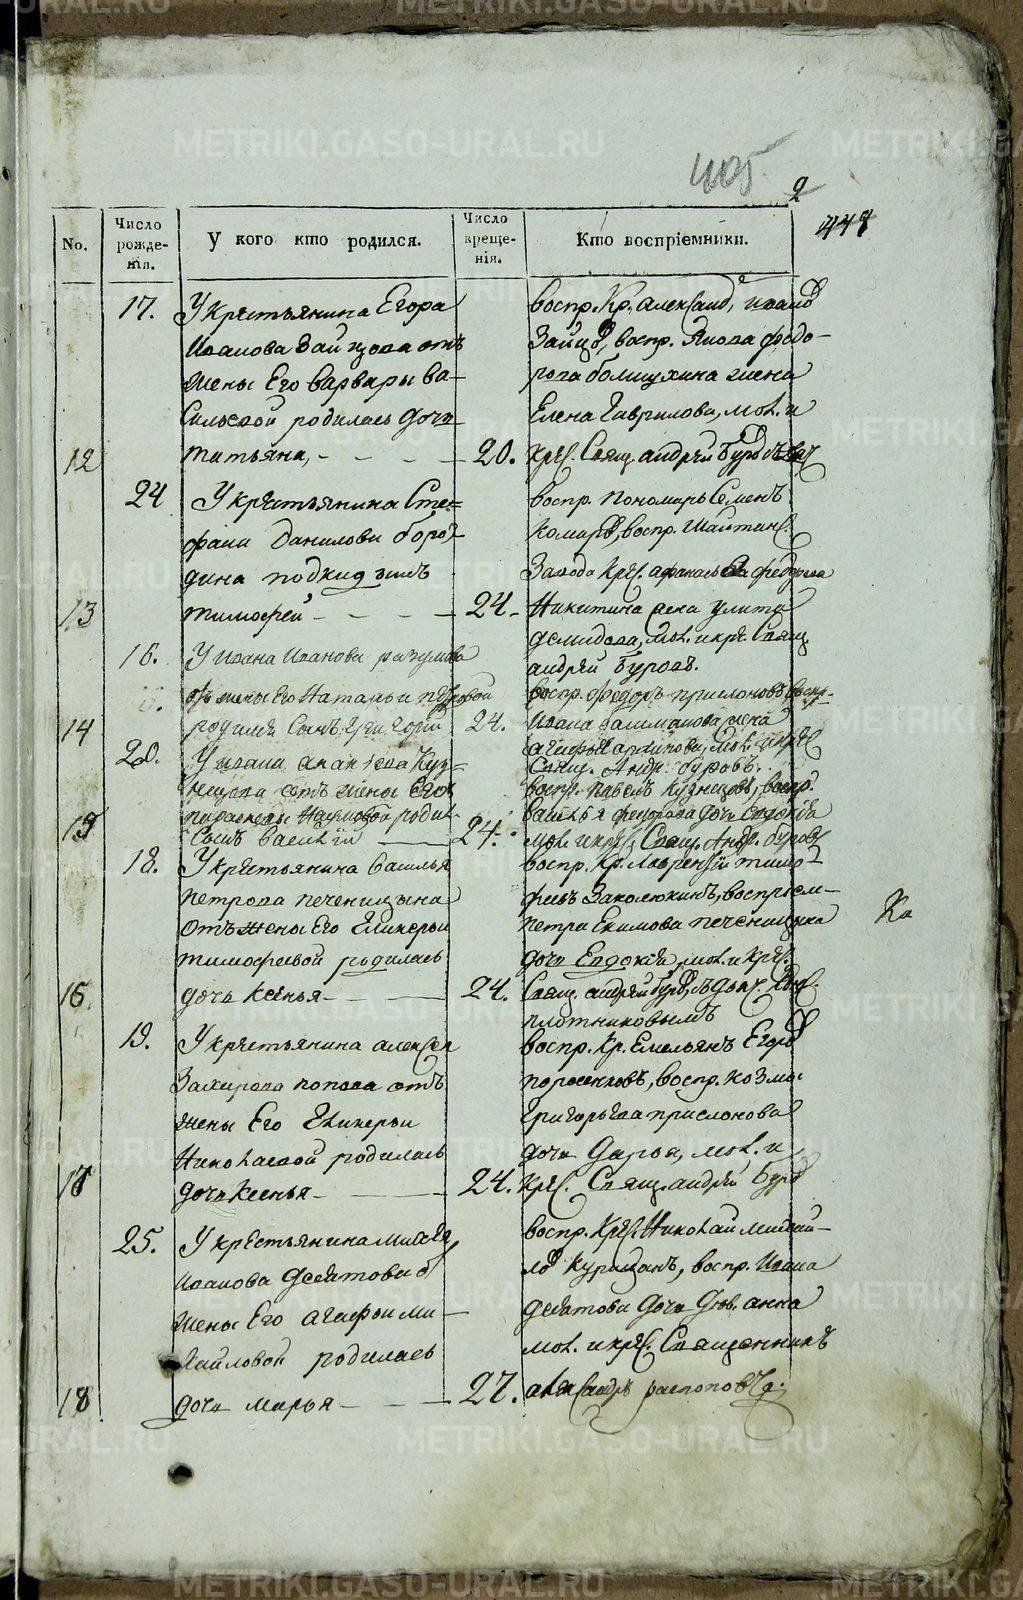 METRIKI.GASO-URAL.RU
405
9
448
No.
Число рожде-нія.
У кого кто родился.
Число креще-нія.
Кто воспріемники.
17. У крестьянина Егора
Иванова Зайцова отъ
жены Его Варвары Ва-
сильевой родилась дочь
12 татьяна, 20.
воспр. Кр. Александ, иванов
Зайцов, воспр. федо-
рова жена
Елена Гаврилова, мол. и
крес. Свящ. андрей Буров
24 У крестьянина Сте-
фана Данилова боро-
дина подкидышъ
13 тимофей 24
воспр. пономарь Семенъ
Комаров, воспр. Шайтан.
Завода крес. федорова
Никитича улита
демидова, мол. и кре. Свящ.
андрей Буровъ.
16. У ивана Иванова разумова
отъ жены Его Натальи петровой
14 родился сынъ григорий 24.
воспр. федоръ прислоновъ воспр.
Ивана жена
мол. и крес
Свящ. Андр. буровъ.
20. У ивана Куз-
нецова отъ жены Его
родил.
15 Сынъ василій 24.
воспр. павелъ кузнецовъ, воспр.
василья федорова дочь Евдокія
мол. и крес. Свящ. Андр. буров
18. У крестьянина василья
петрова печеницына
отъ жены Его Гликерьи
тимофеевой родилась
16. дочь ксенья 24.
воспр. Кр. лаврентій тимо-
феевъ воспріем-
петра Екимова печеницына
дочь Евдокія, мол. и крес.
Свящ. андрей Буров, съ дьяч.
плотниковымъ
Ка
19. У крестьянина алексея
попова отъ
жены Его Гликерьи
Николаевой родилась
17 дочь ксенья 24.
воспр. Кр. Емельянъ Егоров
воспр. козмы
григорьева прислонова
дочь Дарья, мол. и
крес. Свящ. андрей Буров
25. У крестьянина
Иванова девятова от
жены Его агафьи ми-
хайловой родилась
18 дочь марья 27.
воспр. крес. Николай михай-
лов воспр. Ивана
девятова дочь дев. анна
мол. и крес. Священникъ
александръ распоповъ